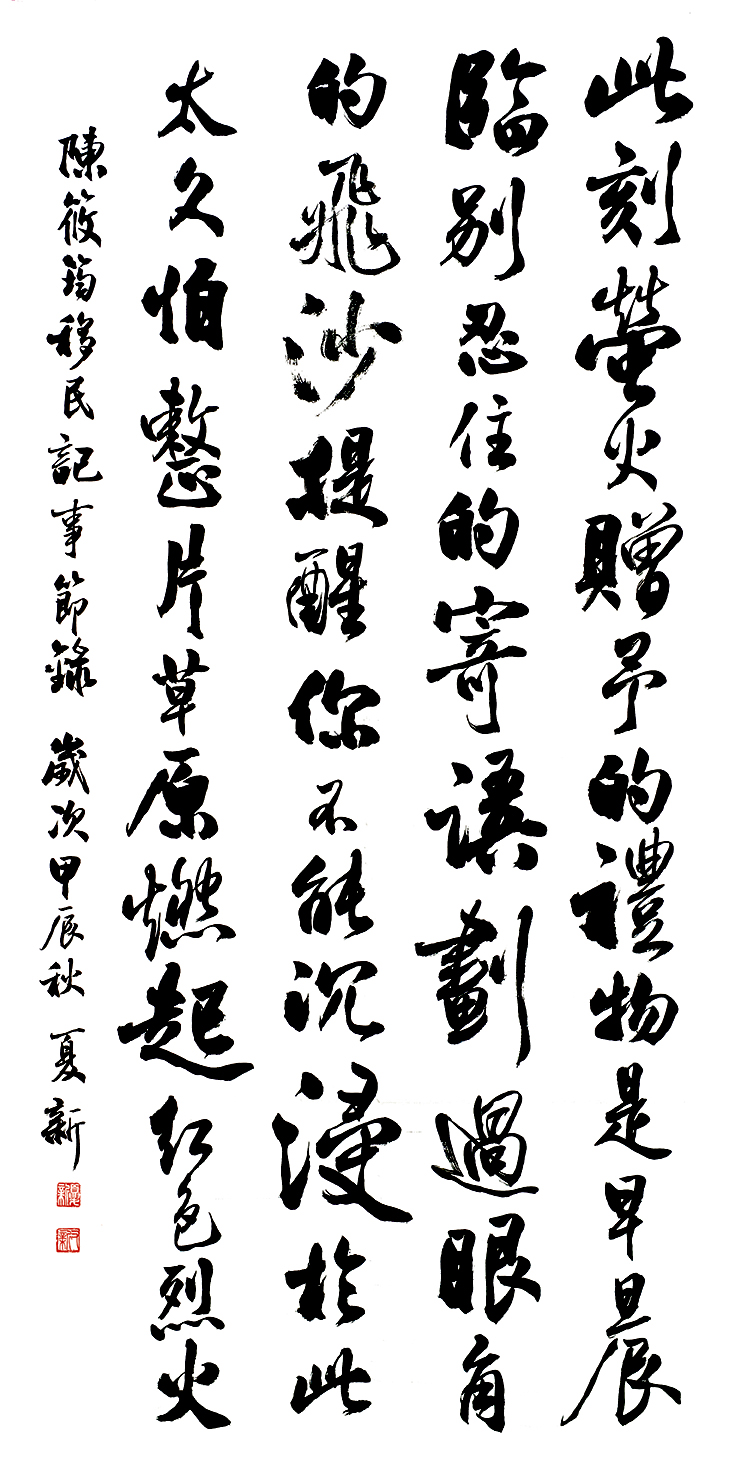 此刻螢火贈予的禮物是早晨
臨別忍住的寄語劃過眼角
的飛沙提醒你不能沉浸於此
太久怕整片草原燃起紅色烈火
陳筱筠移民記事節錄 歲次甲辰秋 夏新